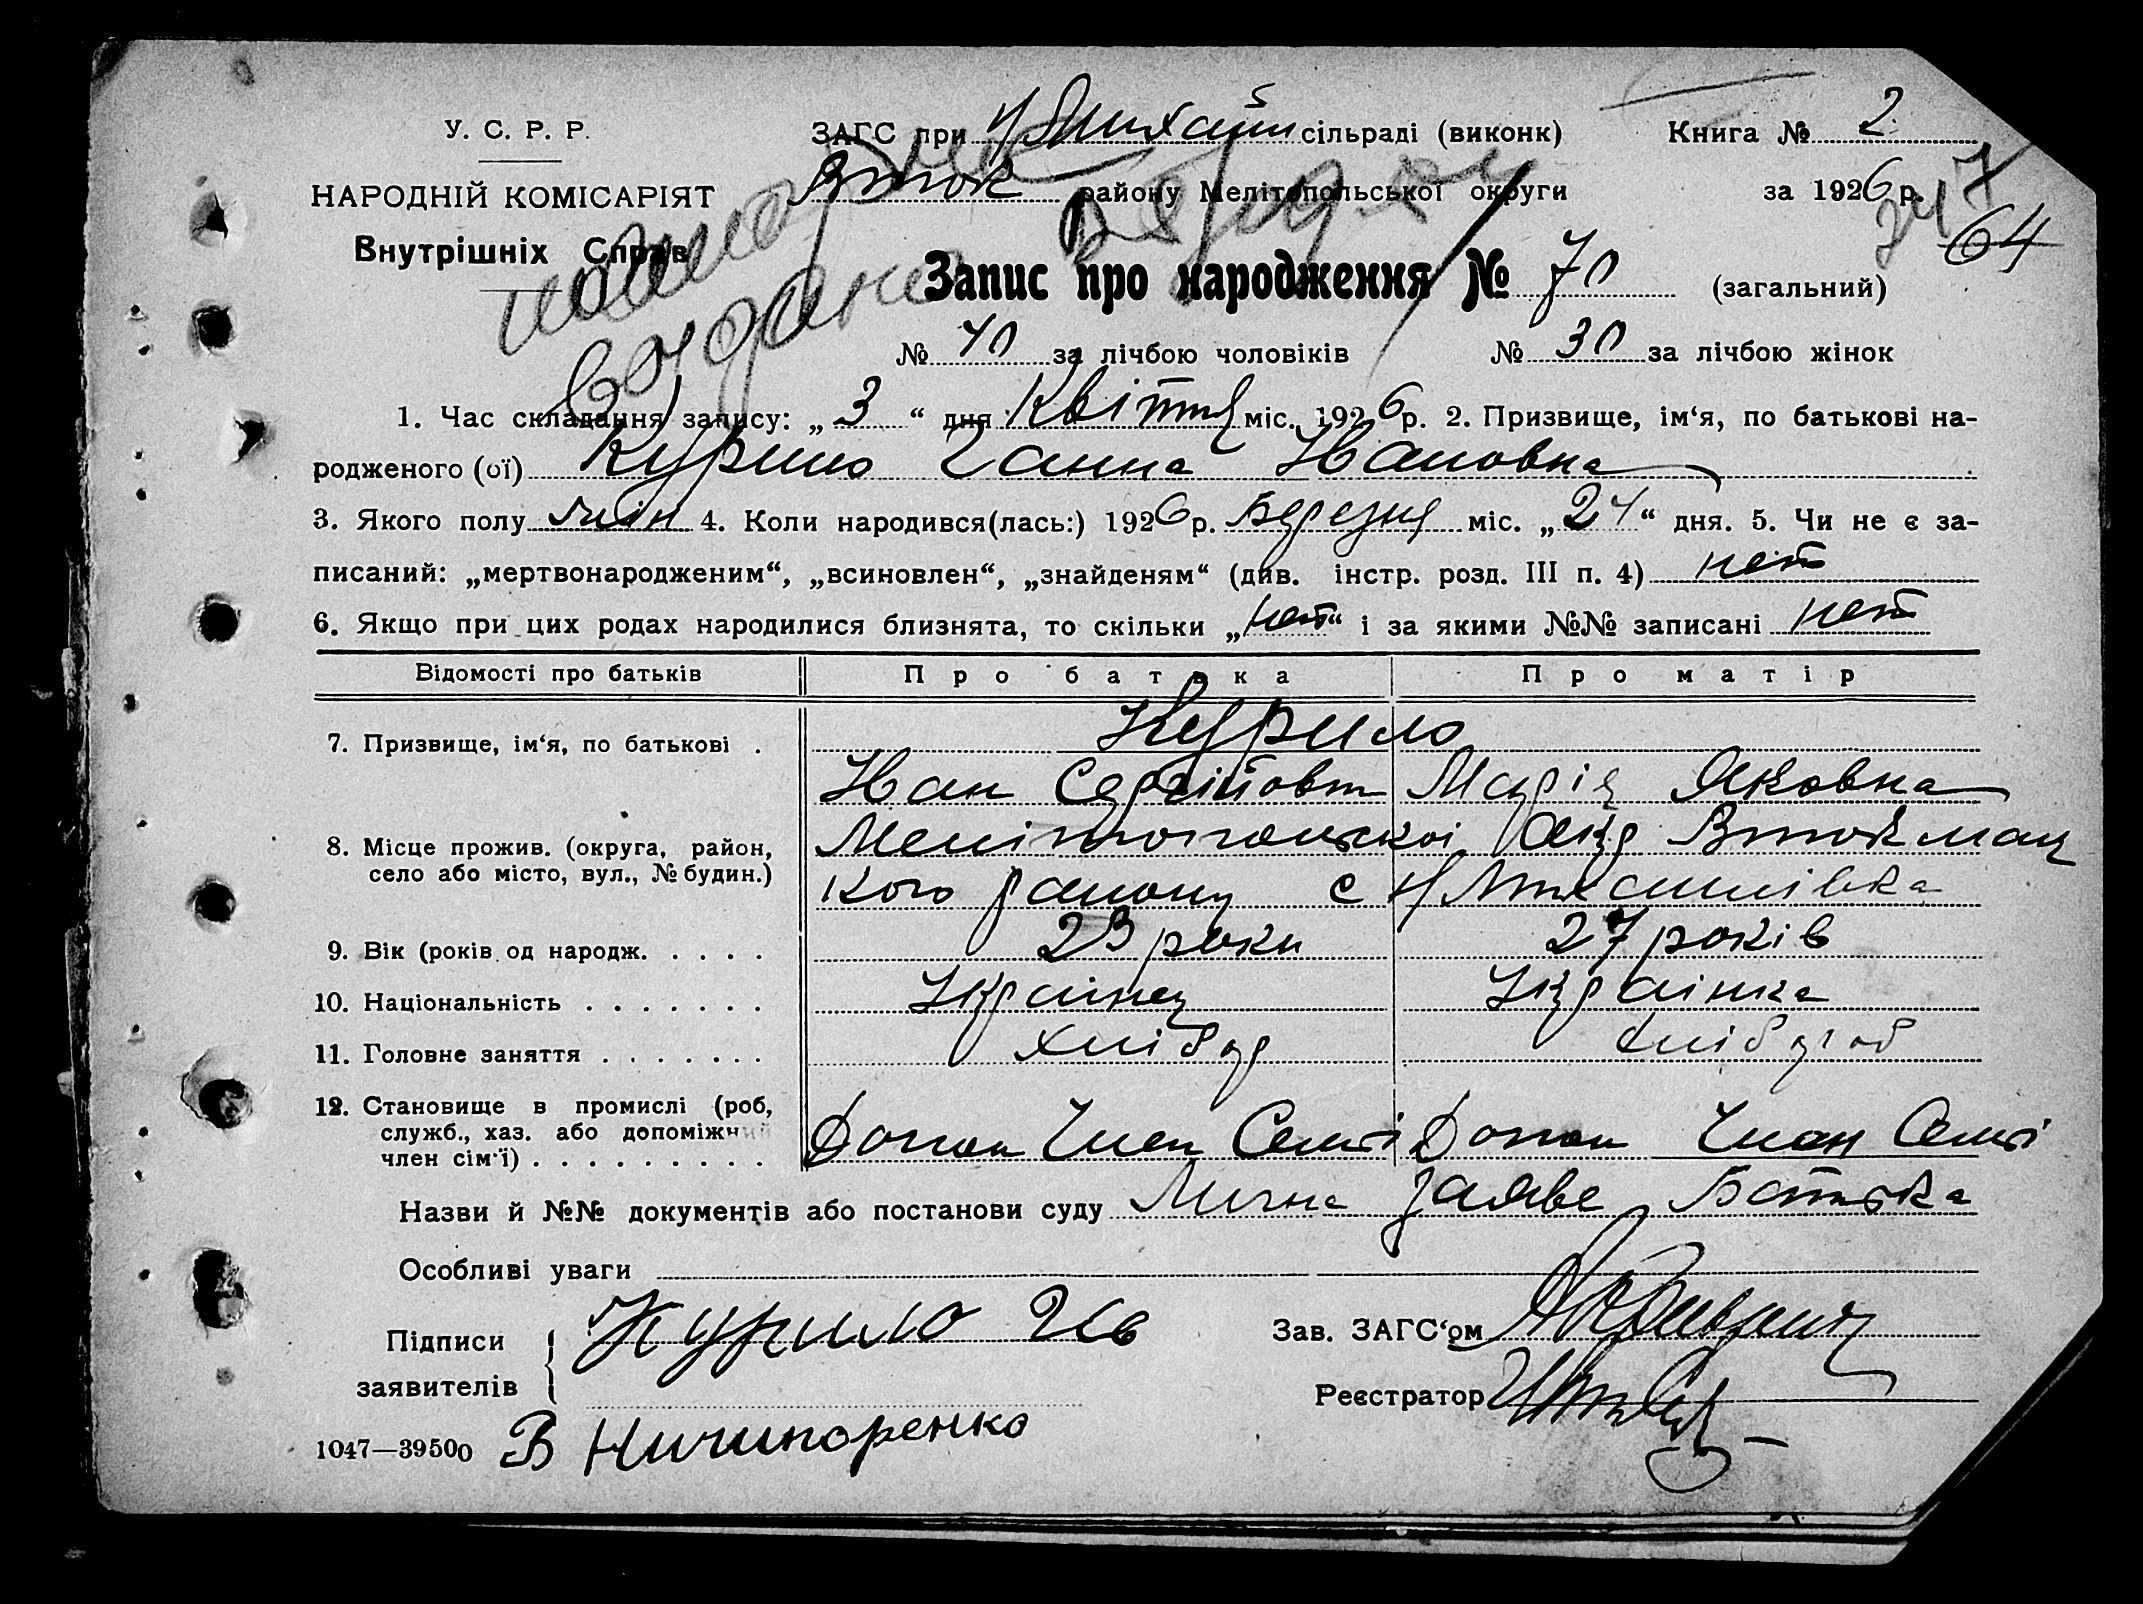 У. С. Р. Р.
НАРОДНІЙ КОМІСАРІЯТ
Внутрішніх Справ
ЗАГС при Н Михайл сільраді (виконк)
Вток району Мелітопольської округи
Книга № 2
за 1926 р.
64
Запис про народження № 70 (загальний)
№ 40 за лічбою чоловіків № 30 за лічбою жінок
1. Час складання запису: „ 3 “ дня Квітня міс. 1926 р. 2. Призвище, ім‘я, по батькові на-
родженого (ої) Курило Ганна Ивановна
3. Якого полу жін 4. Коли народився(лась:) 1926 р. Березня міс. „ 24 “ дня. 5. Чи не є за-
писаний: „мертвонародженим“, „всиновлен“, „знайденям“ (див. інстр. розд. III п. 4) нет
6. Якщо при цих родах народилися близнята, то скільки „ нет “ і за якими №№ записані нет
Відомості про батьків Про батька Про матір
7. Призвище, ім‘я, по батькові . Курило
Иван Сергійовт Марія Яковна
8. Місце прожив. (округа, район, Мелітопольскоі Окр Втокмац
село або місто, вул., № будин.) кого району с Н Михайлівка
9. Вік (років од народж. . . . . 23 роки 27 років
10. Національність . . . . . . . Українец Українка
11. Головне заняття . . . . . . . Хлібор Хлібороб
12. Становище в промислі (роб,
служб., хаз. або допоміжний
член сім‘ї) . . . . . . . . . Допом Член Семі Допом Член Семі
Назви й №№ документів або постанови суду Лична заяве Батька
Особливі уваги
Підписи
заявителів
Курило Ив
Зав. ЗАГС‘ом
Реєстратор
1047—39500 В Ничипоренко